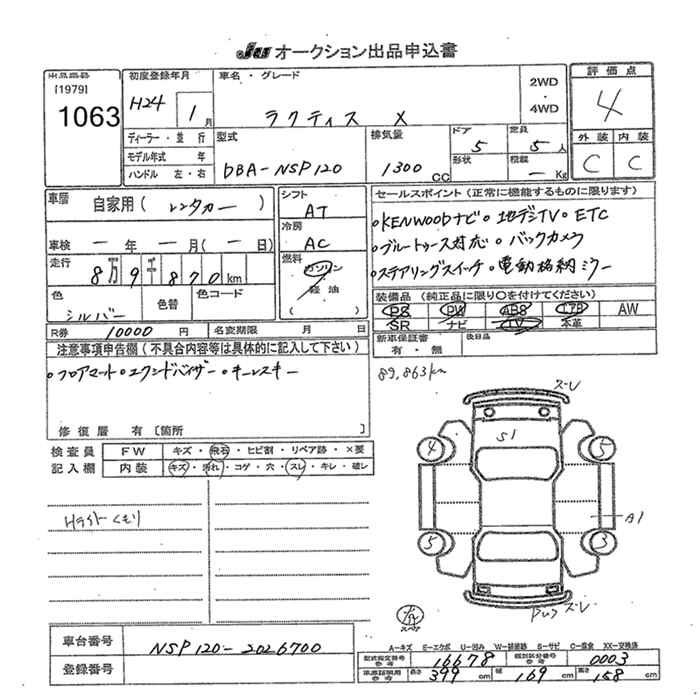 JU オークション出品申込書
出品番号 初度登録年月 車名・グレード 2WD・4WD 評価点
[1979] 1063
H24 1月 ラクティス X 4
ディーラー・並行 型式 排気量 ドア 定員 外装 内装
モデル年式 年 DBA-NSP120 1300CC 5 5人 C C
ハンドル 左・右 形状 積載 ー Kg
車歴 自家用(レンタカー) シフト AT
冷房 AC
車検 ー年 ー月(ー日)
走行 8万9千870km 燃料 ガソリン 軽油 ( )
色 シルバー 色替 色コード
R券 10000円 名変期限 月 日
セールスポイント (正常に機能するものに限ります)
・KENWOODナビ・地デジTV・ETC
・ブルートゥース対応・バックカメラ
・ステアリングスイッチ・電動格納ミラー
装備品 (純正品に限り〇を付けてください)
PS PW ABS エアB AW
SR ナビ TV 本革
新車保証書 有・無 後日品
注意事項申告欄 (不具合内容等は具体的に記入して下さい)
・フロアマット・エクンドバイザー・キーレスキー
89,863km
修復歴 有〔箇所 〕
検査員記入欄 FW キズ・飛石・ヒビ割・リペア跡・×要
内装 キズ・汚れ・コゲ・穴・スレ・キレ・破レ
Hライトくもり
スレ
S1
4 5
A1
5 3
スレ
車台番号 NSP120-2026700
登録番号
A−キズ E−エクボ U−凹み W−補修跡 S−サビ C−腐食 XX−交換済
型式指定番号 参考 16678 類別区分番号 参考 0003
車車証明用 参考 長さ 399cm 幅 169cm 高さ 158cm